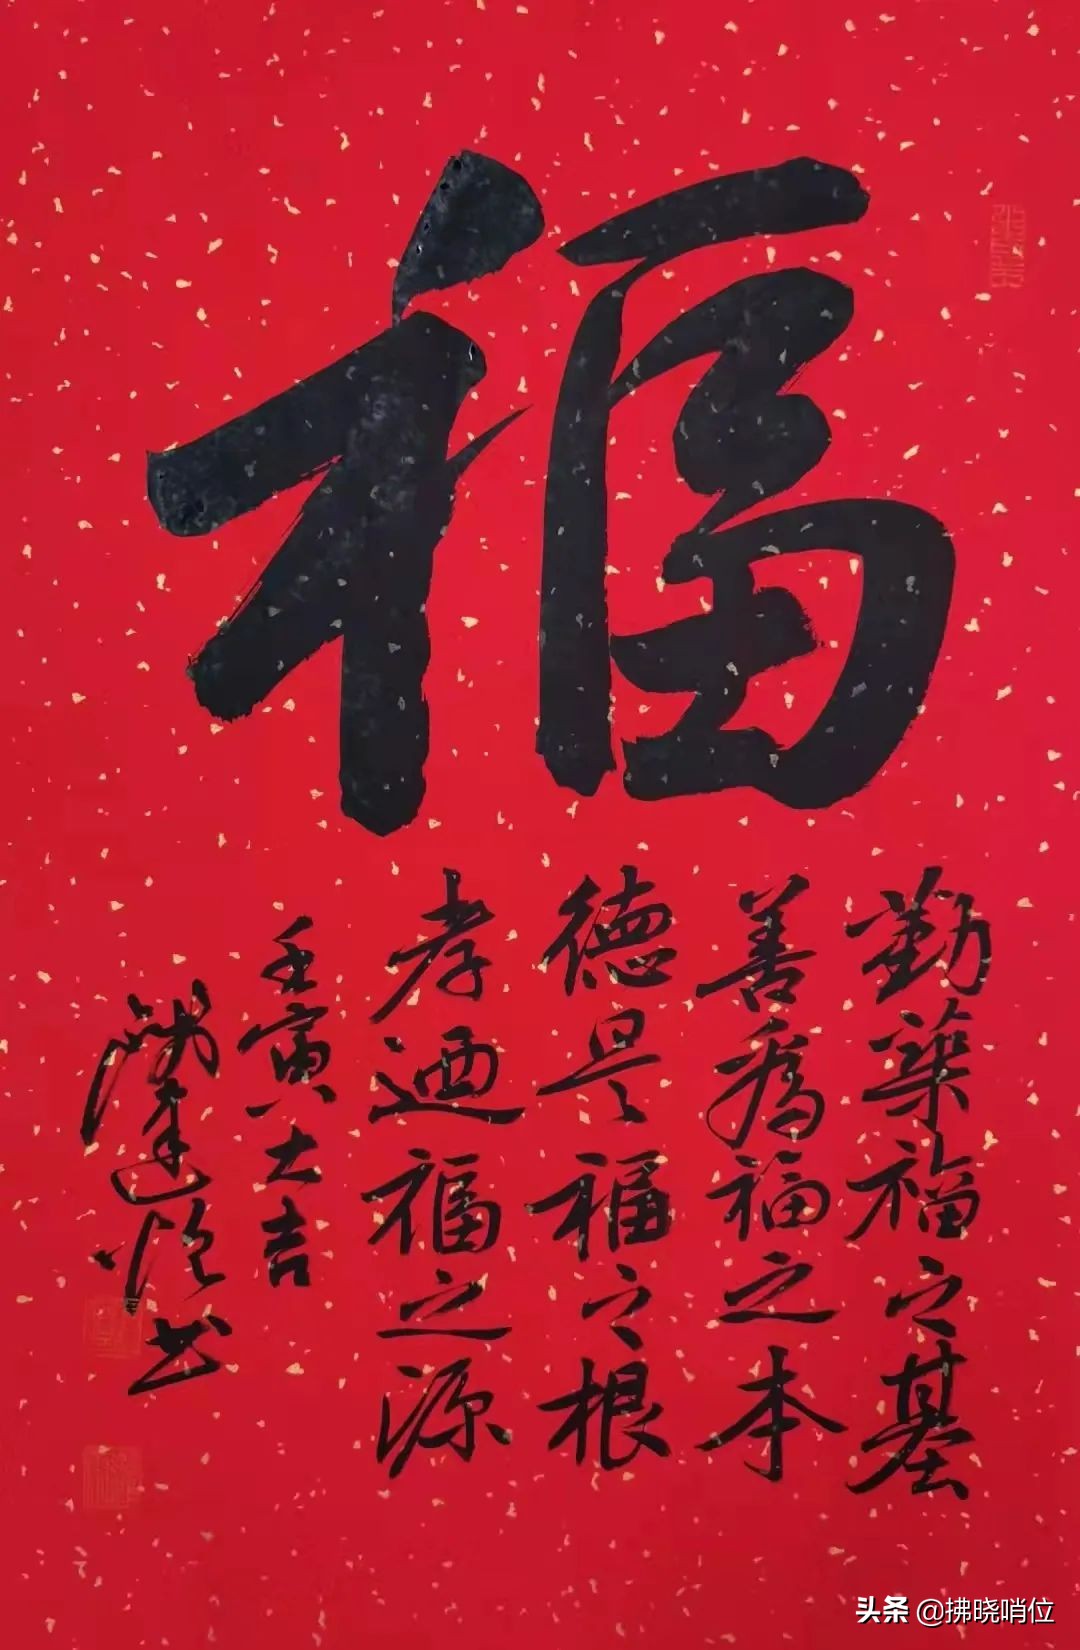 福
勤築福之基
善為福之本
德是福之根
孝迺福之源
壬寅大吉
书
头条 @拂晓哨位